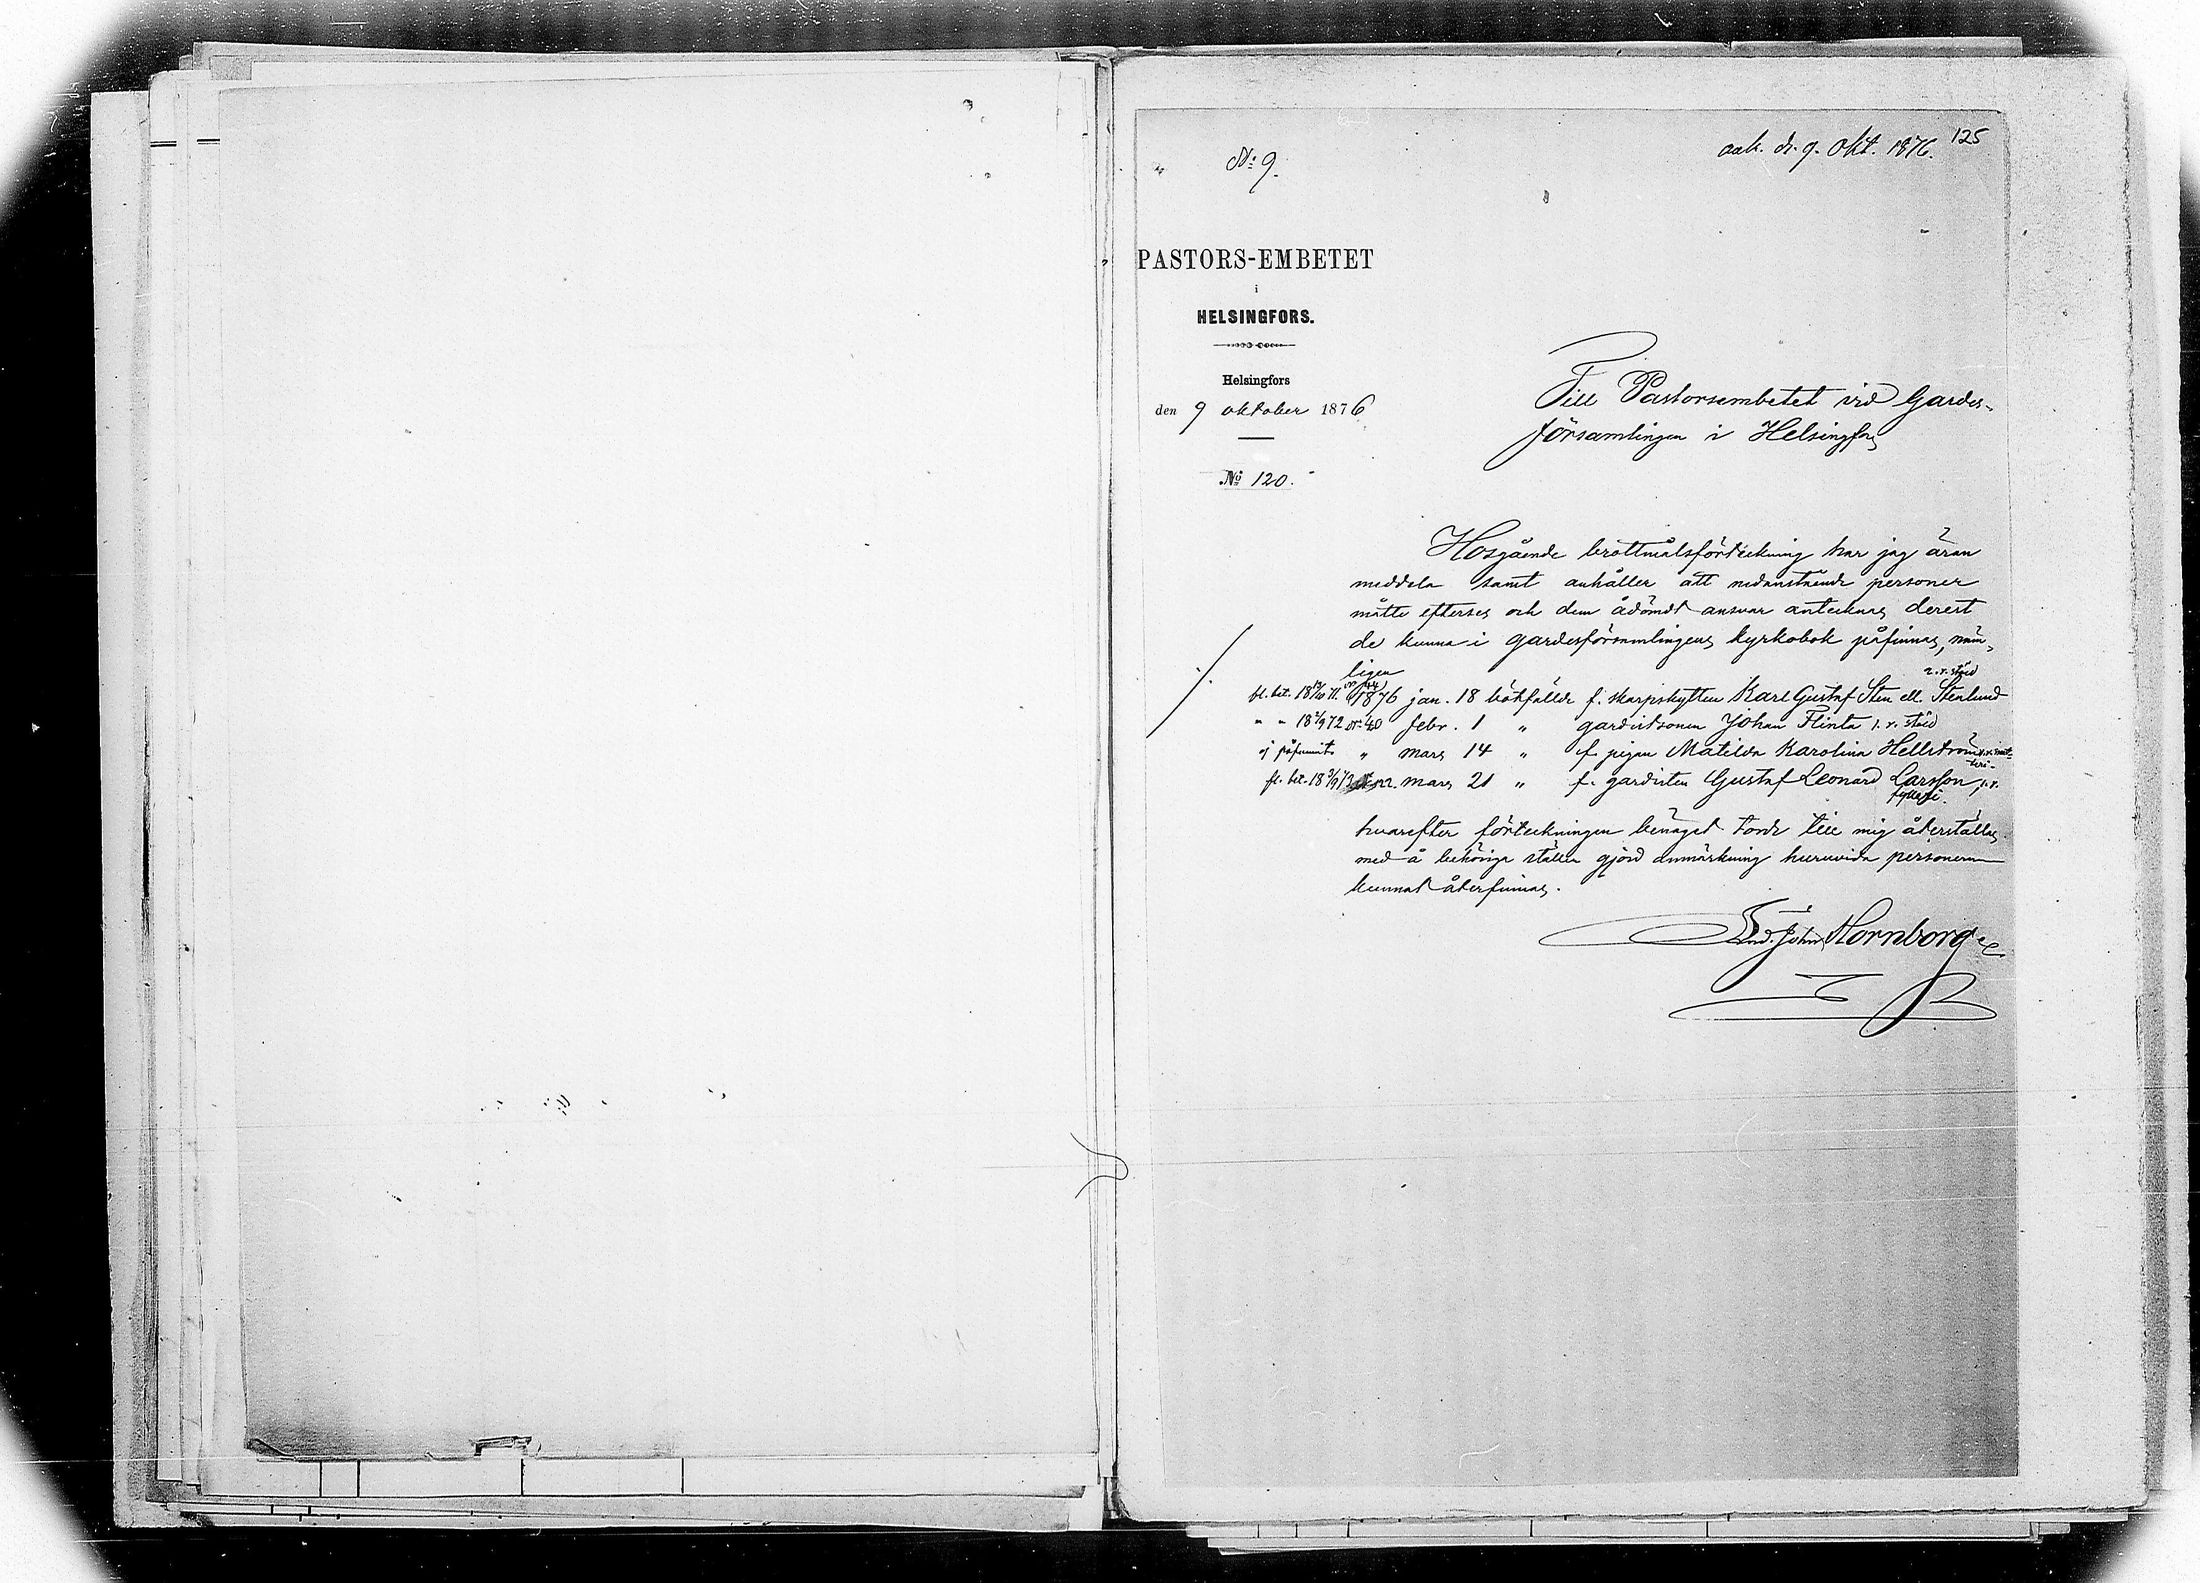 N:o 9.
ank. d. 9. Okt. 1876.
125
PASTORS-EMBETET
i
HELSINGFORS.
Helsingfors
den 9 oktober 1876
No 120.
Till Pastorsembetet vid Gardes-
församlingen i Helsingfors
Hosgående brottmålsförteckning har jag äran
meddela samt anhåller att nedanstående personer
måtte efterses och dem ådömdt ansvar antecknas derest
de kunna i gardesförsamlingens kyrkobok påfinnas, näm-
ligen
2. r. stöld
fl. bet. 18 71. 1876 jan. 18 bötfällde f. skarpskytten Karl Gustaf Sten ell. Stenlund
" " 18 2/9 72 nr. 40 febr. 1 " gardistsonen Johan Flinta 1. r. stöld
ej påfunnits " mars 14 " f. pigan Matilda Karolina Hellström
fl. bet. 18 73 mars 21 " f. gardisten Gustaf Leonard Larsson, 1. r.
fylleri.
hvarefter förteckningen benäget torde till mig återställas
med å behöriga ställen gjord anmärkning huruvida personerna
kunnat återfinnas.
And. Johs Hornborg